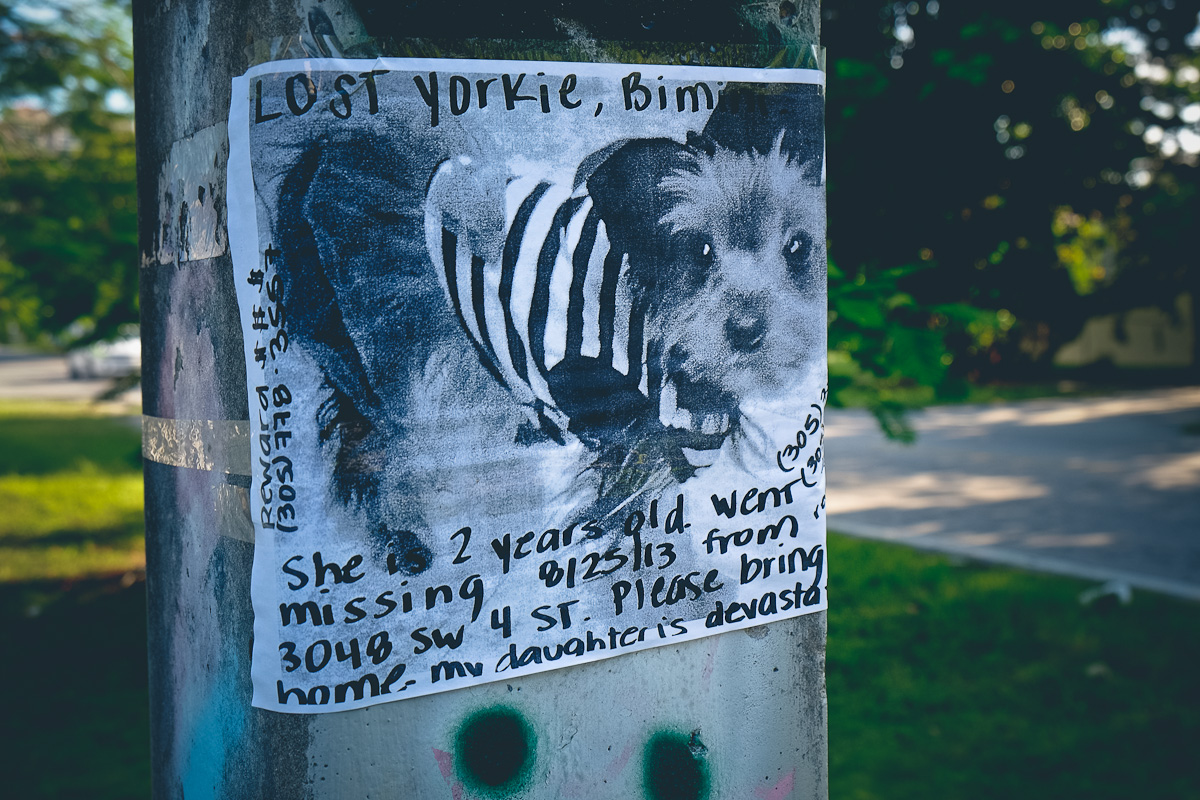 LOST Yorkie, Bimini
Reward $$$
(305) 778-3567
(305)
(305
She is 2 years old. Went
missing 8/25/13 from
3048 SW 4 ST. Please bring
home. my daughter is devasta